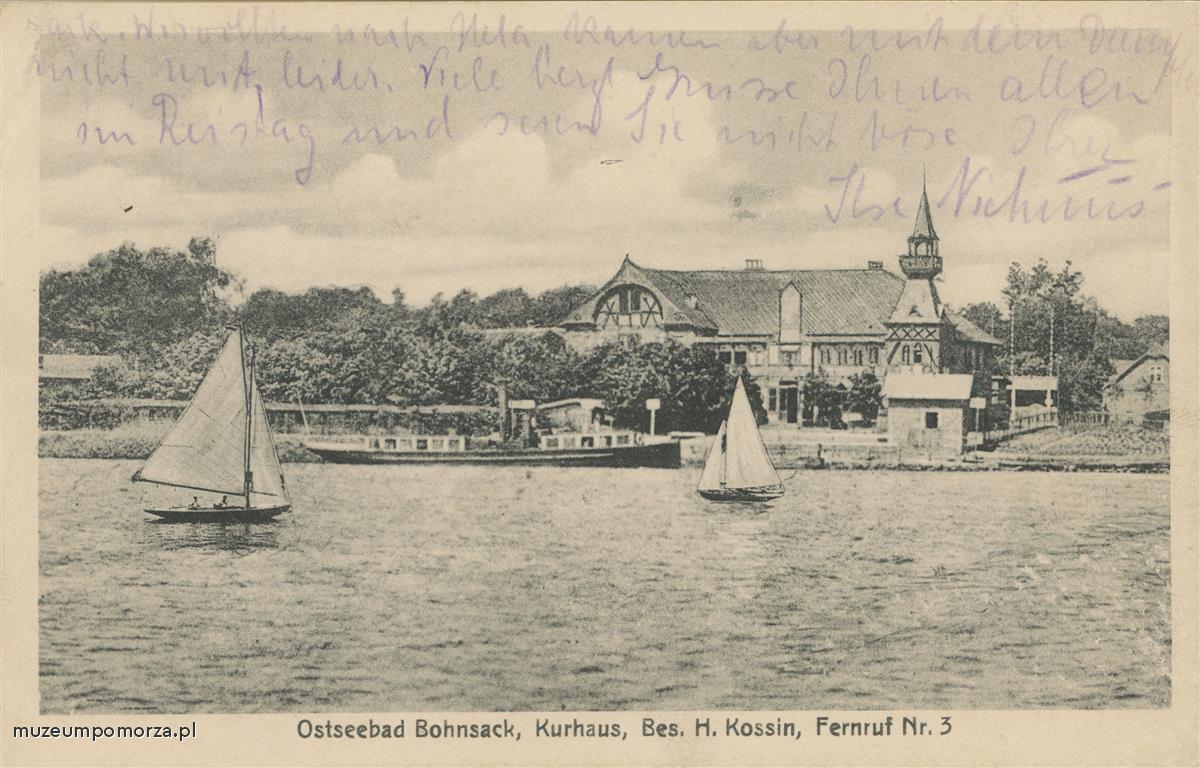 Wir wollten nach Hela, kamen aber mit dem Dampf
nicht mit, leider. Viele herzl Grüsse Ihnen allen
im Reistag und seien Sie nicht böse Ihrer
Ilse
Ostseebad Bohnsack, Kurhaus, Bes. H. Kossin, Fernruf Nr. 3
muzeumpomorza.pl